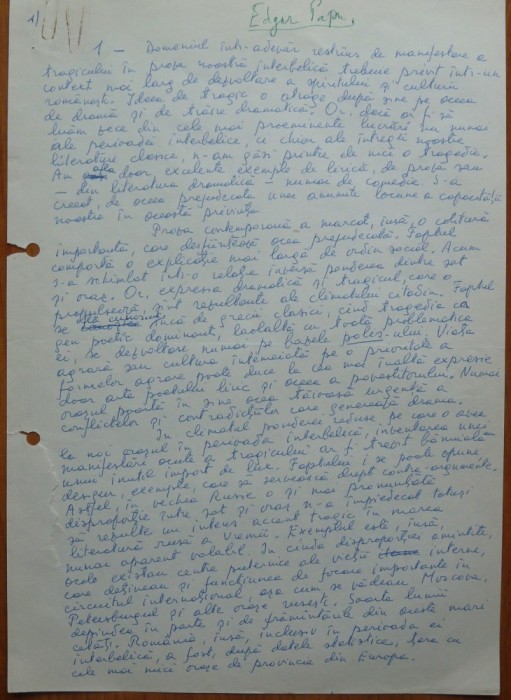 1)
Edgar Papu
1 — Domeniul într-adevăr restrîns de manifestare a
tragicului în proza noastră interbelică trebuie privit într-un
context mai larg de dezvoltare a spiritului și culturii
românești. Ideea de tragic o atrage după sine pe aceea
de dramă și de trăire dramatică. Or, dacă ar fi să
luăm zece din cele mai proeminente lucrări nu numai
ale perioadei interbelice, ci chiar ale întregii noastre
literaturi clasice, n-am găsi printre ele nici o tragedie.
Am afla doar, excelente exemple de lirică, de proză sau
— din literatura dramatică — numai de comedie. S-a
creat, de aceea prejudecata unei anumite lacune a capacității
noastre în această privință.
Proza contemporană a marcat, însă, o cotitură
importantă, care desființează acea prejudecată. Faptul
comportă o explicație mai largă de ordin social. Acum
s-a schimbat într-o relație inversă ponderea dintre sat
și oraș. Or, expresia dramatică și tragicul, care o
propulsează, sînt rezultante ale climatului citadin. Faptul
se află cunoscut încă de grecii clasici, cînd tragedia ca
gen poetic dominant, laolaltă cu toată problematica
ei, se dezvoltase numai pe bazele polis-ului. Viața
agrară sau cultura întemeiată pe o prioritate a
formelor agrare poate duce la cea mai înaltă expresie
doar arta poetului liric și aceea a povestitorului. Numai
orașul poartă în sine acea tăioasă urgență a
conflictelor și contradicțiilor care generează drama.
În climatul ponderii reduse, pe care o avea
la noi orașul în perioada interbelică, inventarea unei
manifestări acute a tragicului ar fi trezit bănuiala
unui inutil import de lux. Faptului i se poate opune,
desigur, exemple, care să servească drept contra-argumente.
Astfel, în vechea Rusie o și mai pronunțată
disproporție între sat și oraș n-a împiedecat totuși
să rezulte un intens accent tragic în marea
literatură rusă a vremii. Exemplul este, însă,
numai aparent valabil. În ciuda disproporției amintite,
acolo existau centre puternice ale vieții interne,
care dețineau și funcțiunea de focare importante în
circuitul internațional, așa cum se vădeau Moscova,
Petersburgul și alte orașe rusești. Soarta lumii
depindea în parte și de frămîntările din aceste mari
cetăți. România, însă, inclusiv în perioada ei
interbelică, a fost, după datele statistice, țara cu
cele mai mici orașe de provincie din Europa.